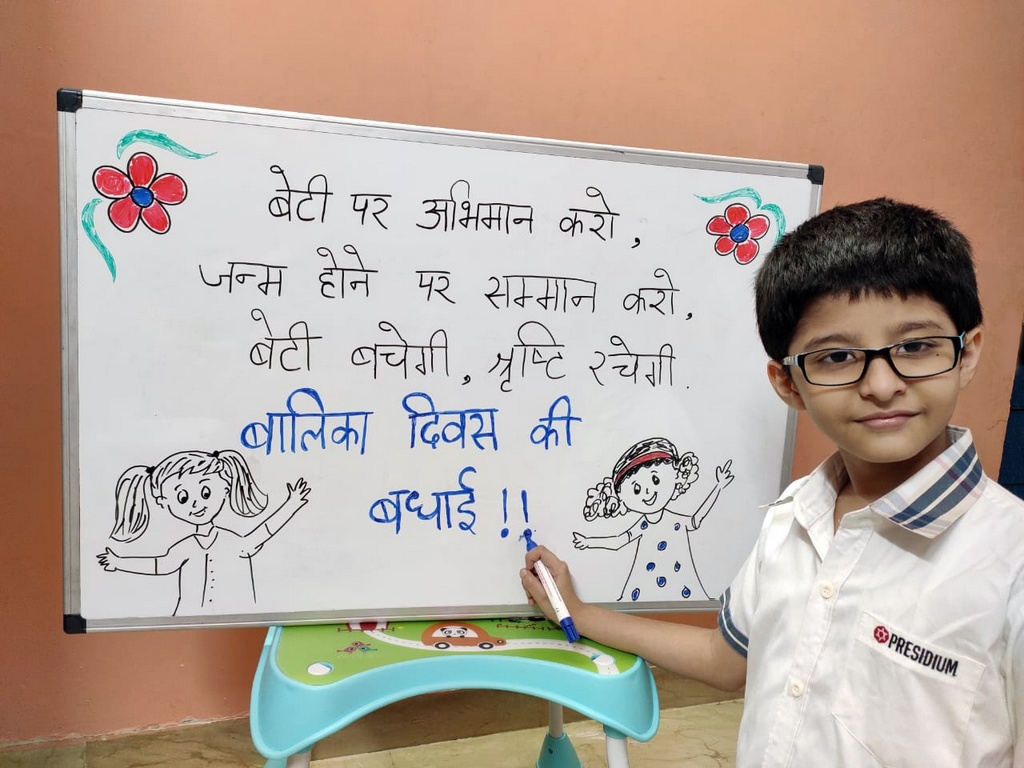 बेटी पर अभिमान करो,
जन्म होने पर सम्मान करो,
बेटी बचेगी, श्रृष्टि रचेगी.
बालिका दिवस की
बधाई !!
PRESIDIUM